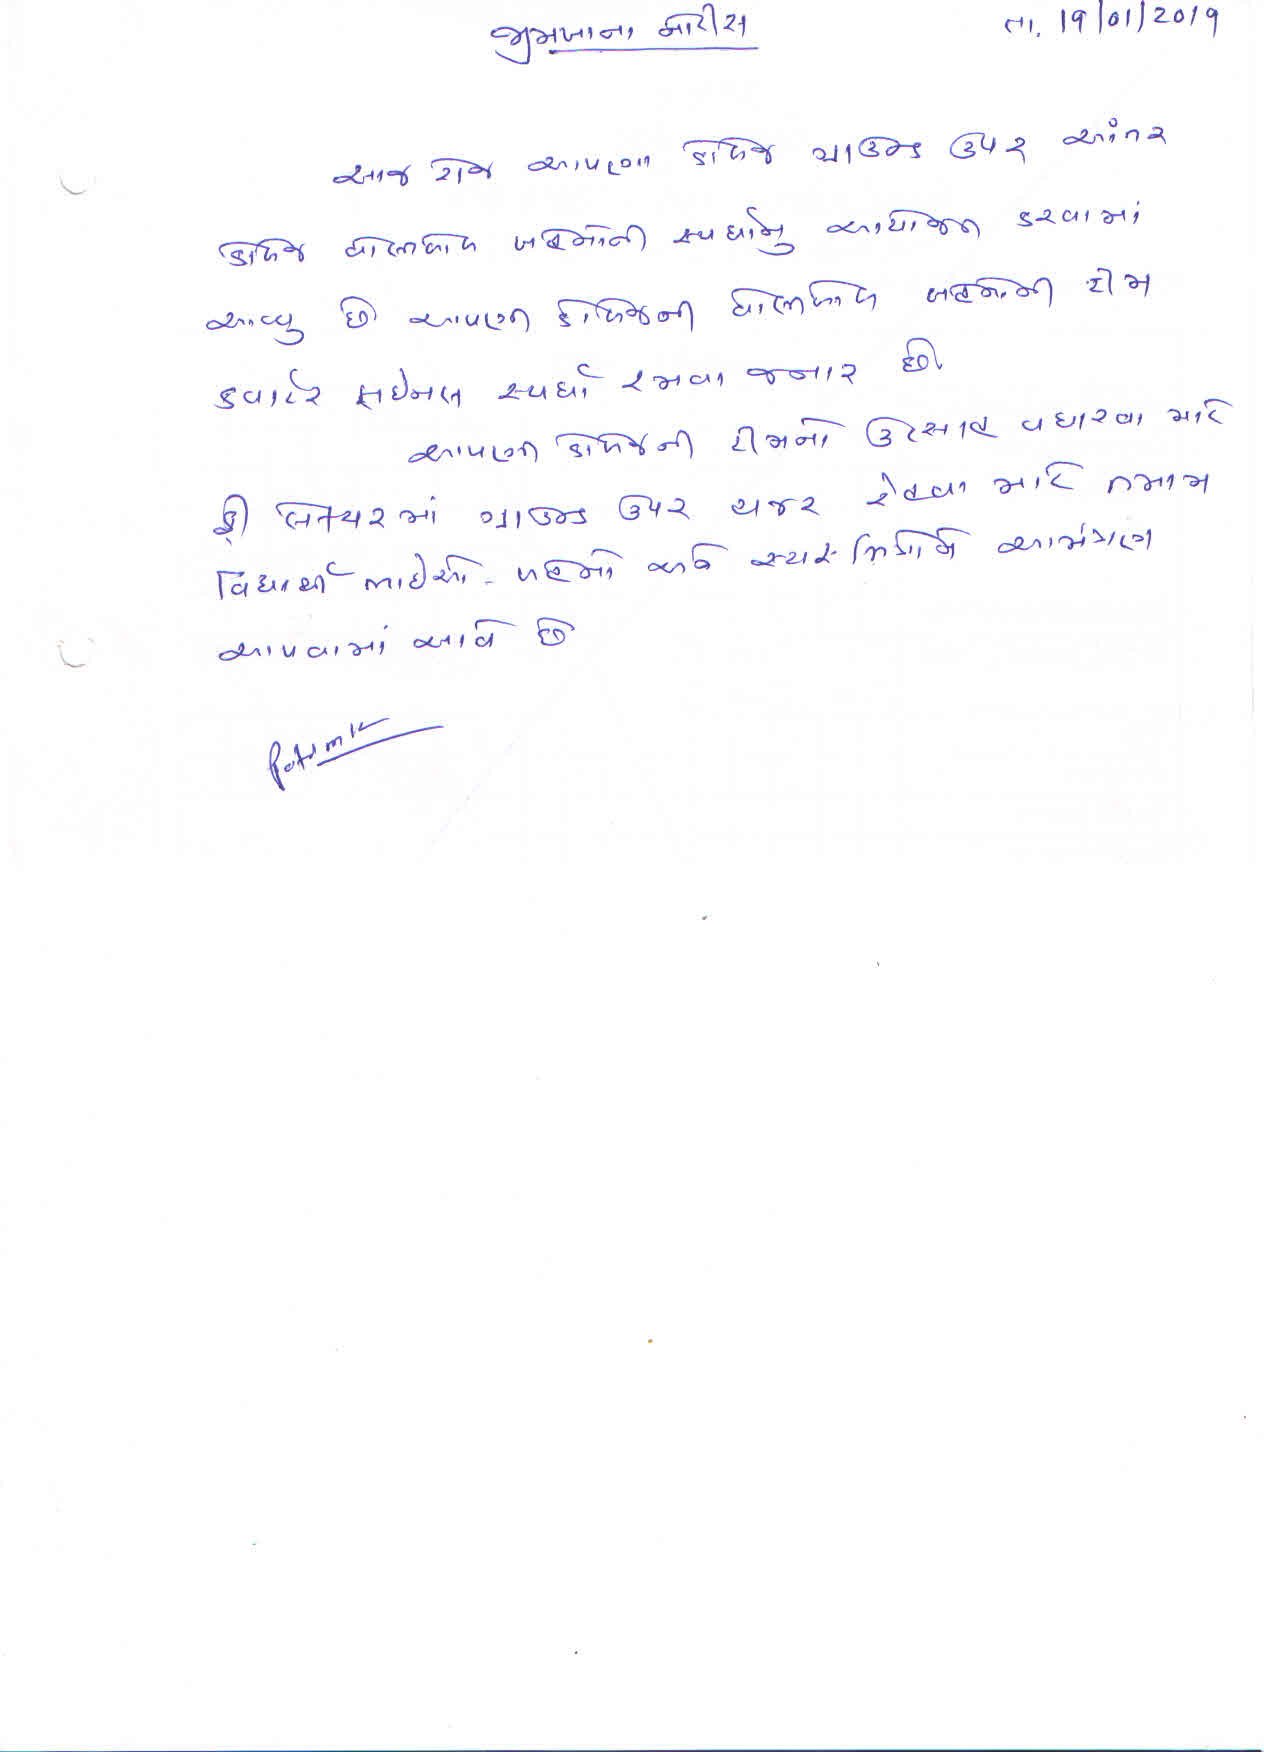 જીમખાના નોટીસ તા. 19/01/2019
આજ રોજ આપણા કોલેજ ગ્રાઉન્ડ ઉપર આંતર
કોલેજ વોલીબોલ બહેનોની સ્પર્ધાનુ આયોજન કરવામાં
આવ્યુ છે આપણી કોલેજની વોલીબોલ બહેનોની ટીમ
કવાર્ટર ફાઇનલ સ્પર્ધા રમવા જનાર છે.
આપણી કોલેજની ટીમનો ઉત્સાહ વધારવા માટે
ફ્રી લેક્ચરમાં ગ્રાઉન્ડ ઉપર હાજર રહેવા માટે તમામ
વિદ્યાર્થી ભાઈઓ - બહેનો અને સ્ટાફ મિત્રોને આમંત્રણ
આપવામાં આવે છે